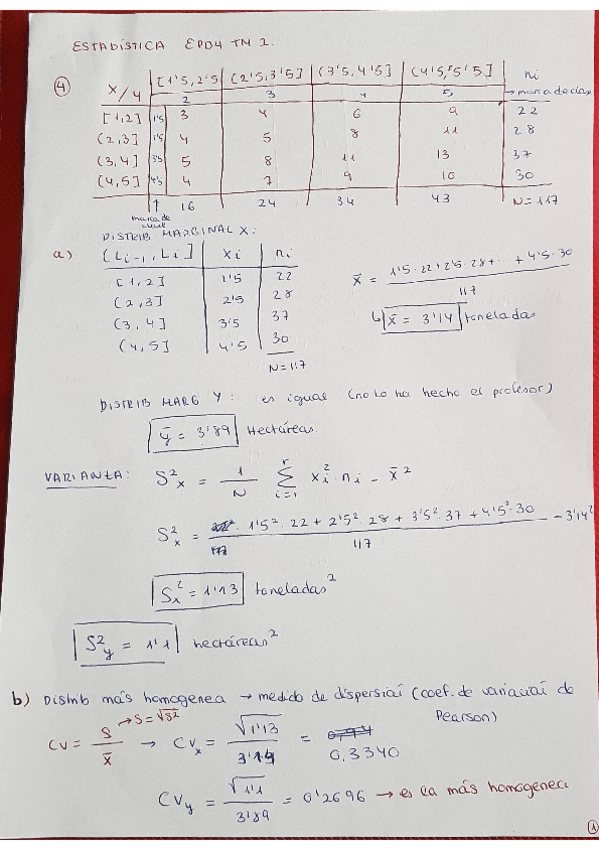 ESTADÍSTICA EPD4 TM 2.
④ X/Y [1'5, 2'5] (2'5, 3'5] (3'5, 4'5] (4'5, 5'5] ni
2 3 4 5 → marca de clase
[1,2] 1'5 3 4 6 9 22
(2,3] 1'5 4 5 8 11 28
(3,4] 3'5 5 8 11 13 37
(4,5] 4'5 4 7 9 10 30
↑ 16 24 34 43 N=117
marca de clase
DISTRIB MARGINAL X:
a) [Li-1, Li] xi ni
[1,2] 1'5 22
(2,3] 2'5 28
(3,4] 3'5 37
(4,5] 4'5 30
N=117
x̄ = 1'5·22+2'5·28+...+4'5·30
117
x̄ = 3'14 toneladas
DISTRIB MARG Y: es igual (no lo ha hecho el profesor)
ȳ = 3'89 Hectáreas.
VARIANZA: S²x = 1/N Σ i=1 r xi² ni - x̄²
S²x = 1'5²·22 + 2'5²·28 + 3'5²·37 + 4'5²·30 - 3'14²
117
Sx² = 1'13 toneladas²
S²y = 1'1 hectáreas²
b) Distrib más homogenea → medida de dispersiaí (coef. de variauaí de
Pearson)
→ S=√S²
CV = S/x̄ → CVx = √1'13 / 3'14 = 0,3340
CVy = √1'1 / 3'89 = 0'2696 → es la más homogenea
1